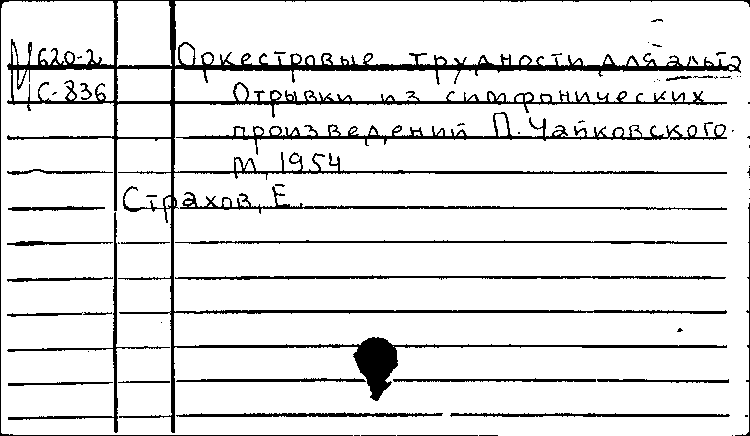 Ц620-2 Оркестровые трудности для альта
С-836 Отрывки из симфонических
произведений П. Чайковского.
М, 1954
Страхов, Е.